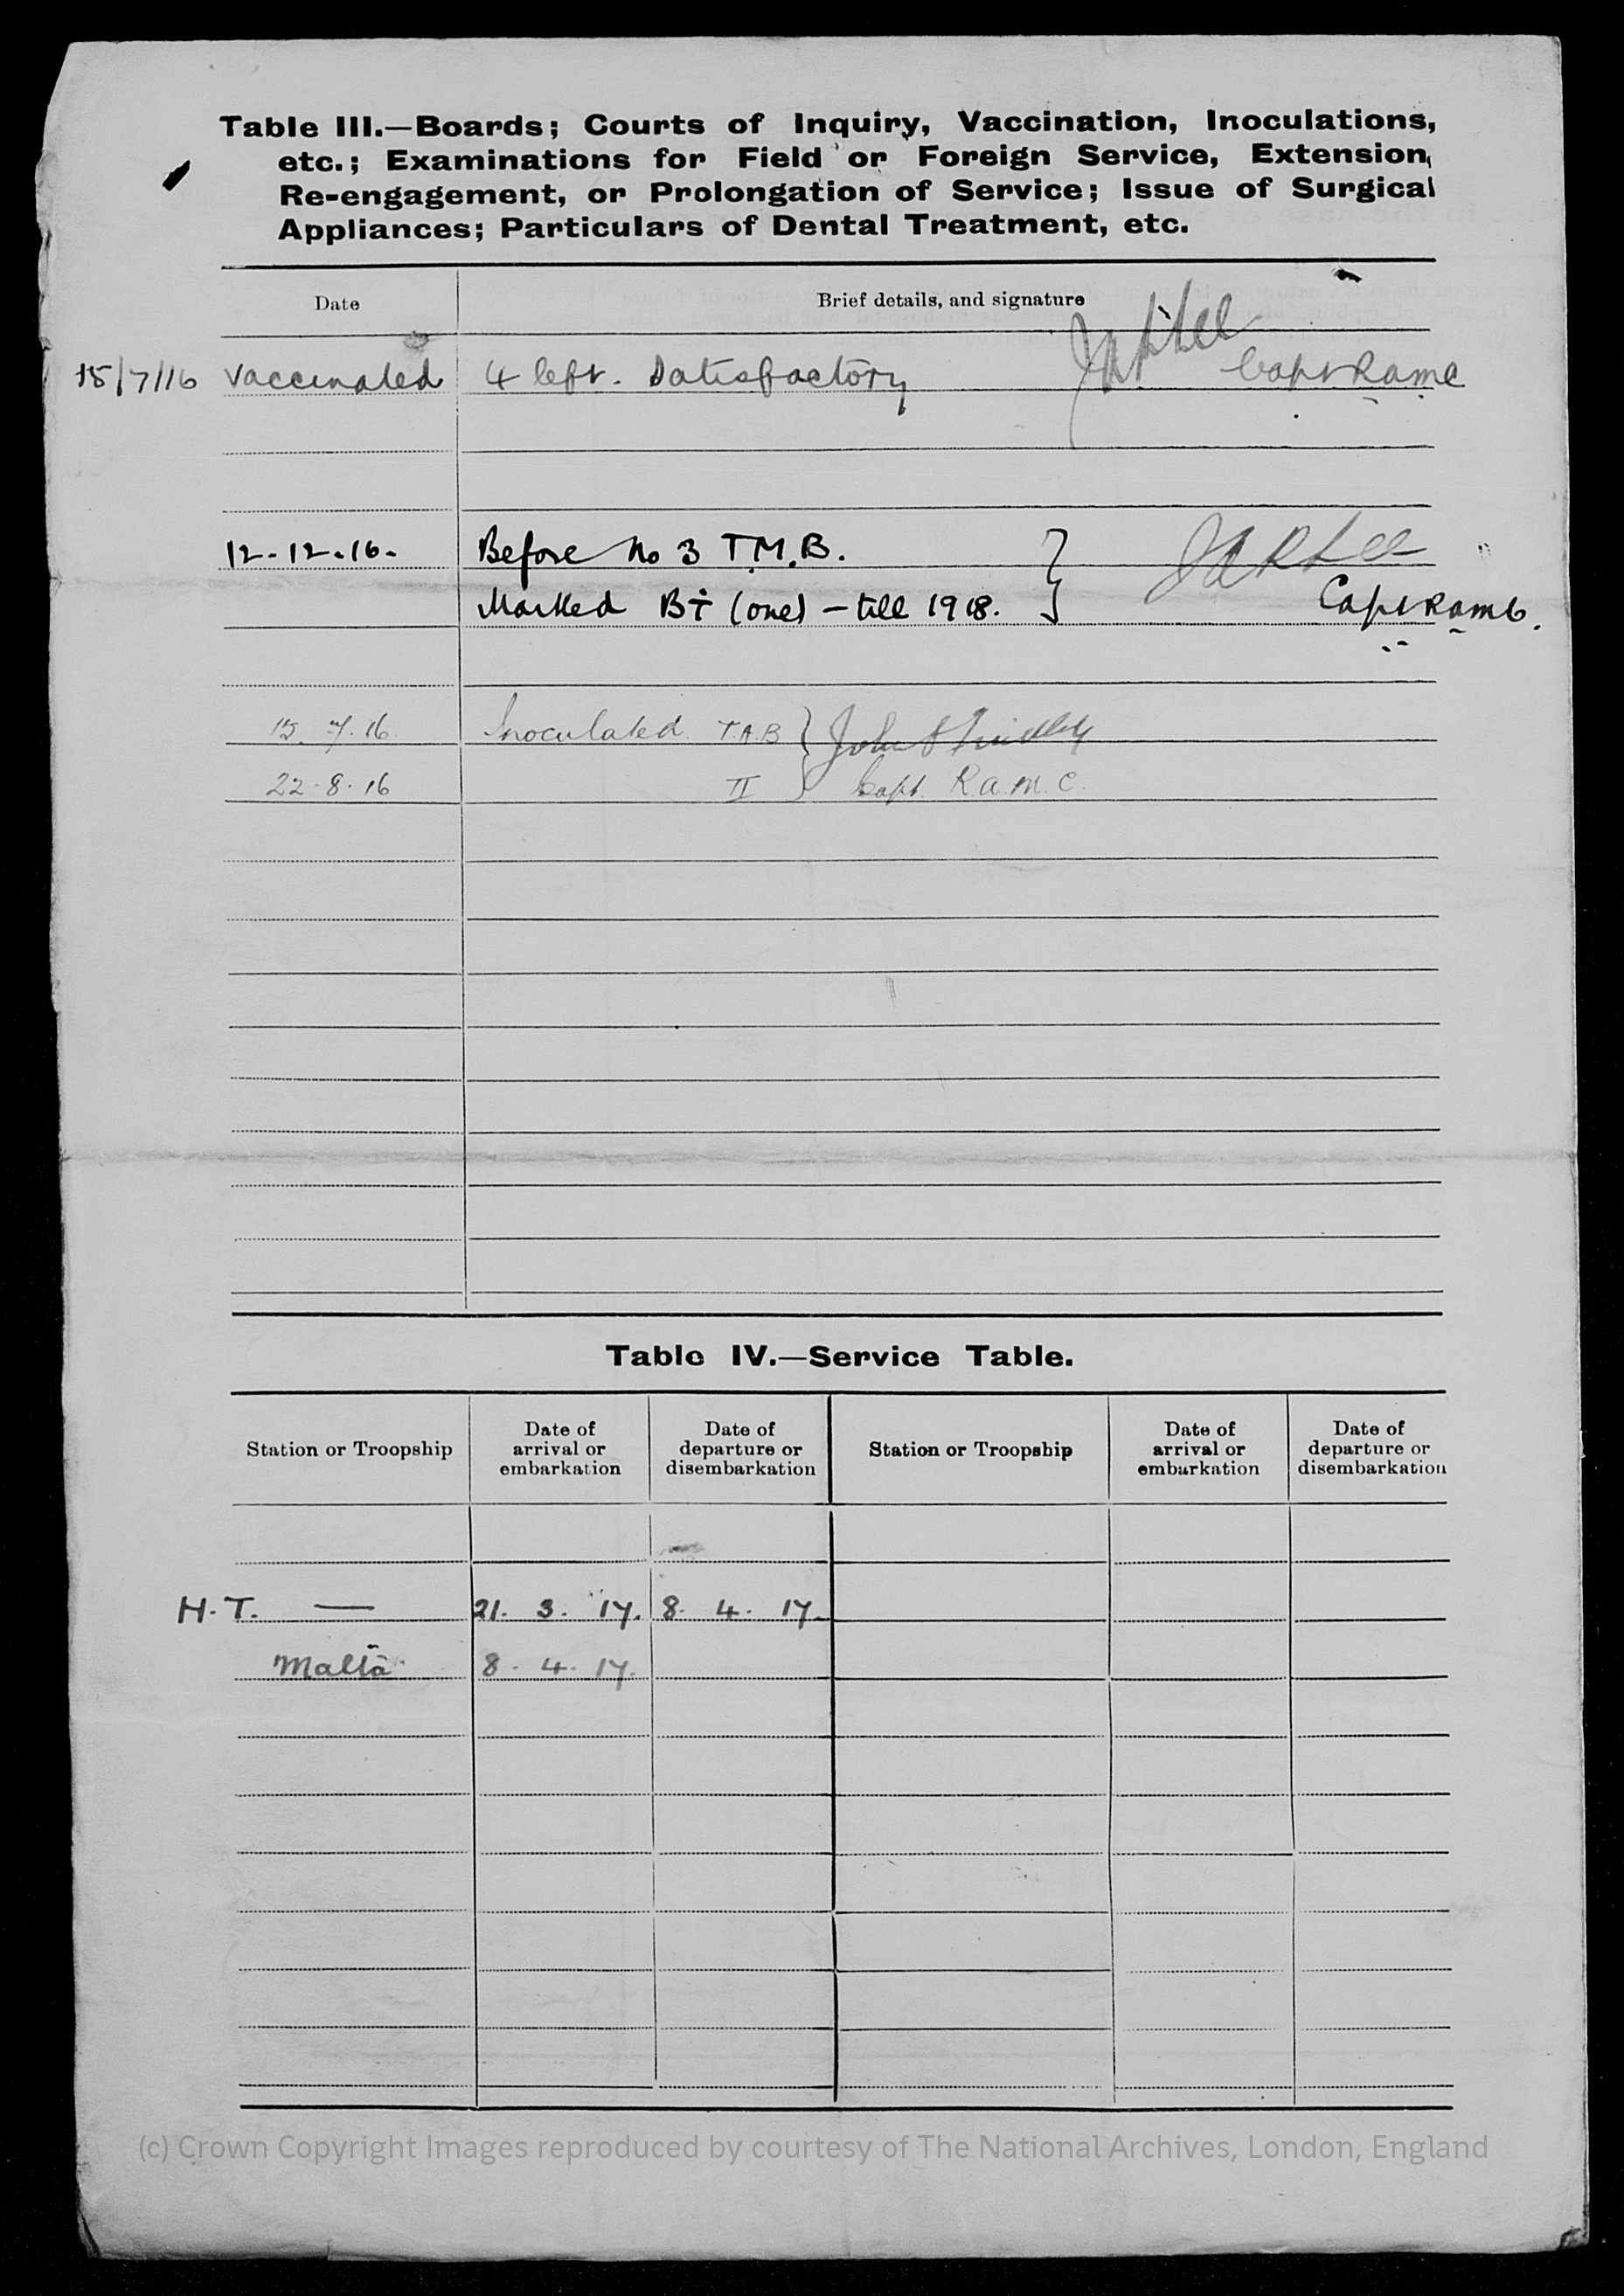 Table III.—Boards; Courts of Inquiry, Vaccination, Inoculations,
etc.; Examinations for Field or Foreign Service, Extension,
Re-engagement, or Prolongation of Service; Issue of Surgical
Appliances; Particulars of Dental Treatment, etc.
Date Brief details, and signature
15/7/16 Vaccinated 4 left. Satisfactory Capt RAMC
12-12-16. Before No 3 T.M.B.
Marked B i (one) – till 1918. Capt RAMC.
15.7.16 Inoculated T.A.B } John
22.8.16 II } Capt. R.A.M.C.
Table IV.—Service Table.
Station or Troopship Date of arrival or embarkation Date of departure or disembarkation Station or Troopship Date of arrival or embarkation Date of departure or disembarkation
H.T. — 21. 3. 17. 8. 4. 17.
Malta 8. 4. 17.
(c) Crown Copyright Images reproduced by courtesy of The National Archives, London, England